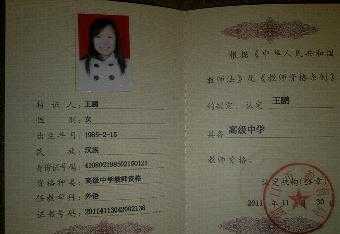 持证人 王鹏
性别 女
出生年月 1985-2-15
民族 汉族
身份证号码
资格种类 高级中学教师资格
任教学科 外语
证书号码
根据《中华人民共和国
教师法》及《教师资格条例》
的规定，认定 王鹏
具备 高级中学
教师资格。
认定机构
2011年11 30